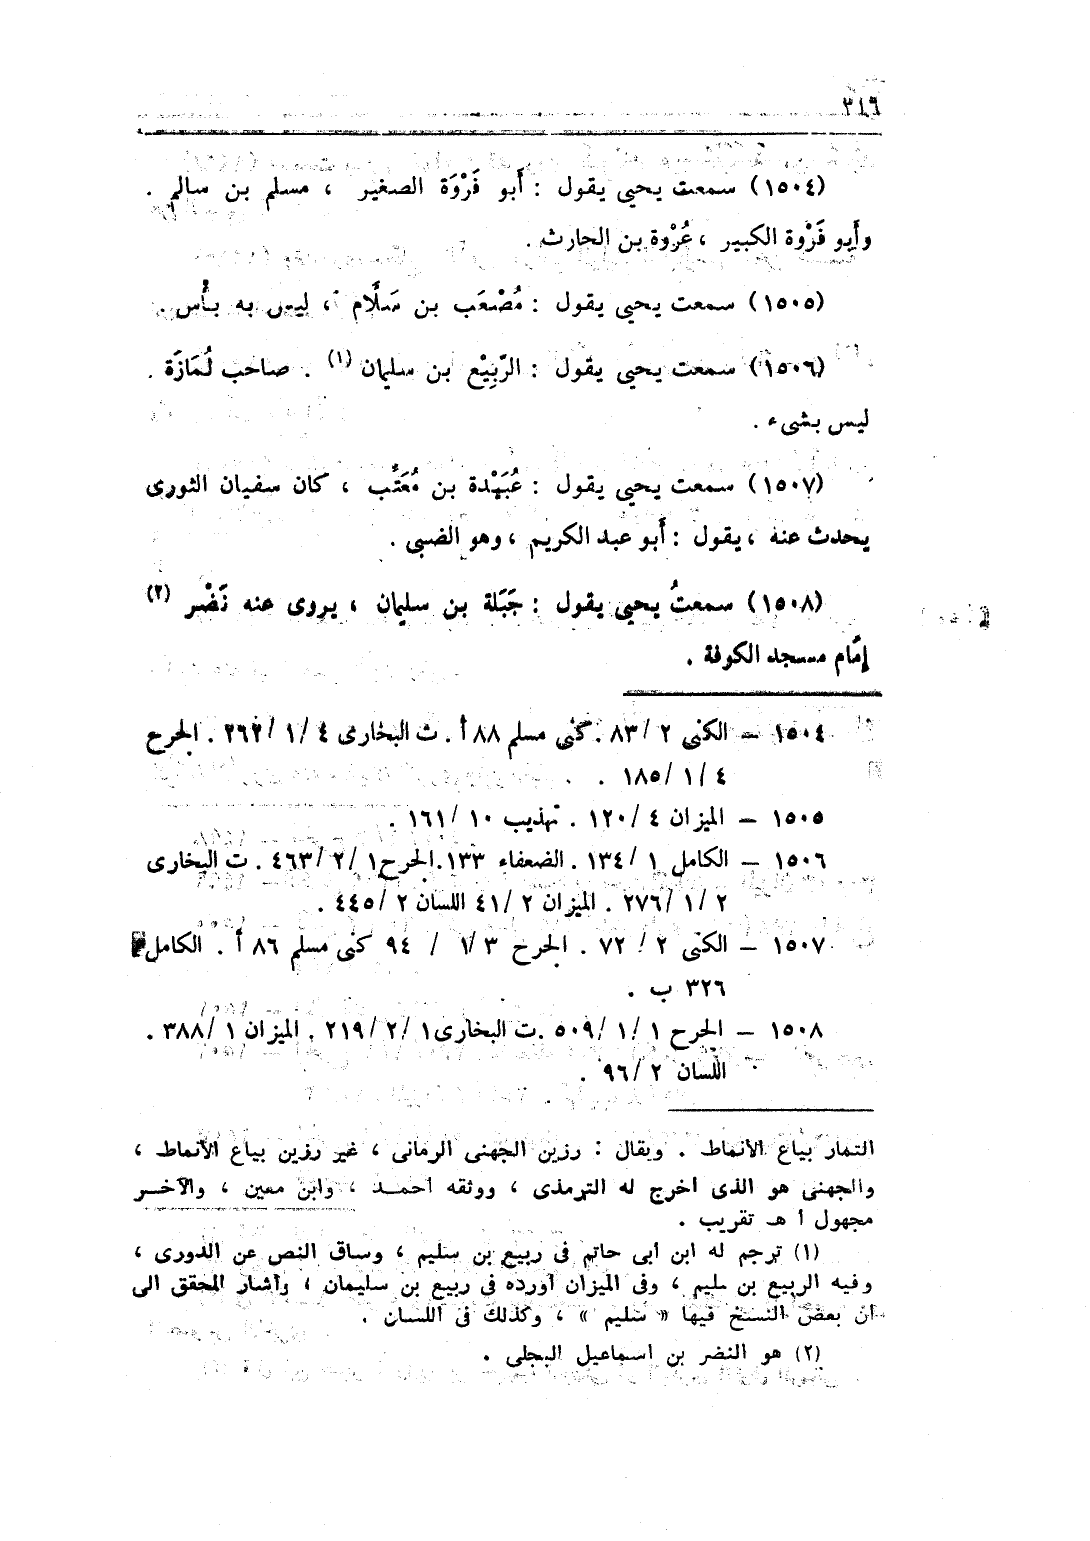 ٣١٦
(١٥٠٤) سمعت يحيى يقول : أَبو فَرْوَة الصغير ، مسلم بن سالم .
وأَبو فَرْوة الكبير ، عُرْوة بن الحارث .
(١٥٠٥) سمعت يحيى يقول : مُصْعَب بن سَلَّام ، ليس به بأْس .
(١٥٠٦) سمعت يحيى يقول : الرَّبِيْع بن سليمان (١) . صاحب لُمَازَة .
ليس بشىء .
(١٥٠٧) سمعت يحيى يقول : عُبَيْدة بن مُعَتِّب ، كان سفيان الثورى
يحدث عنه ، يقول : أَبو عبد الكريم ، وهو الضبى .
(١٥٠٨) سمعتُ يحيى يقول : جَبَلة بن سليمان ، يروى عنه نَضْر (٢)
إمَام مسجد الكوفة .
١٥٠٤ – الكنى ٢ /٨٣ . كنى مسلم ٨٨ أ . ت البخارى ٤ /١ /٢٦٢ . الجرح
٤ /١ /١٨٥ .
١٥٠٥ – الميزان ٤ /١٢٠ . تهذيب ١٠ /١٦١ .
١٥٠٦ – الكامل ١ /١٣٤ . الضعفاء ١٣٣ . الجرح ١ /٢ /٤٦٣ . ت البخارى
٢ /١ /٢٧٦ . الميزان ٢ /٤١ اللسان ٢ /٤٤٥ .
١٥٠٧ – الكنى ٢ / ٧٢ . الجرح ٣ /١ / ٩٤ كنى مسلم ٨٦ أ . الكامل
٣٢٦ ب .
١٥٠٨ – الجرح ١ /١ /٥٠٩ . ت البخارى ١ /٢ /٢١٩ . الميزان ١ /٣٨٨ .
اللسان ٢ /٩٦ .
التمار بياع الأنماط . ويقال : رزين الجهنى الرمانى ، غير رزين بياع الأنماط ،
والجهنى هو الذى أخرج له الترمذى ، ووثقه أحمد ، وابن معين ، والآخر
مجهول أ هـ تقريب .
(١) ترجم له ابن أبى حاتم فى ربيع بن سليم ، وساق النص عن الدورى ،
وفيه الربيع بن سليم ، وفى الميزان أورده فى ربيع بن سليمان ، وأشار المحقق الى
أن بعض النسخ فيها « سليم » ، وكذلك فى اللسان .
(٢) هو النضر بن اسماعيل البجلى .